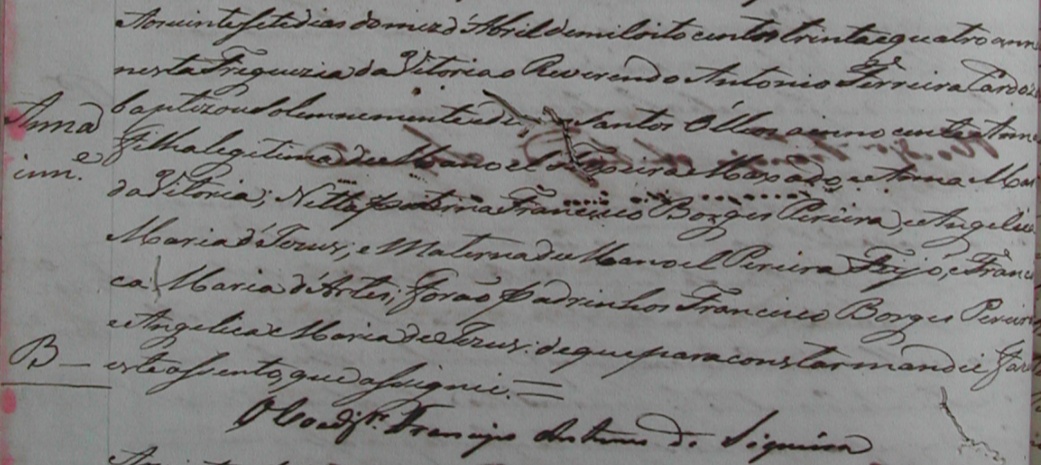 Aos vinte sete dias do mez d'Abril de mil oito centos trinta e quatro ann
Anna
nesta Freguezia da Vitoria o Reverendo Antonio Ferreira Cardozo
inn.e
baptizou solemnemente e Santos Oleos a innocente Anna
Filha legitima de Manoel Pereira Maxado, e Anna Mar
da Vitoria; Netta paterna Francisco Borges Pereira, e Angelica
Maria de Jezus; e Materna de Manoel Pereira Feijó, e Franc
ca Maria d'Artes; forão padrinhos Francisco Borges Pereira
e Angelica Maria de Jezus: de que para constar mandei faz
B - este assento, que assignei. =
O Coadj.or Francisco Antunes de Siqueira